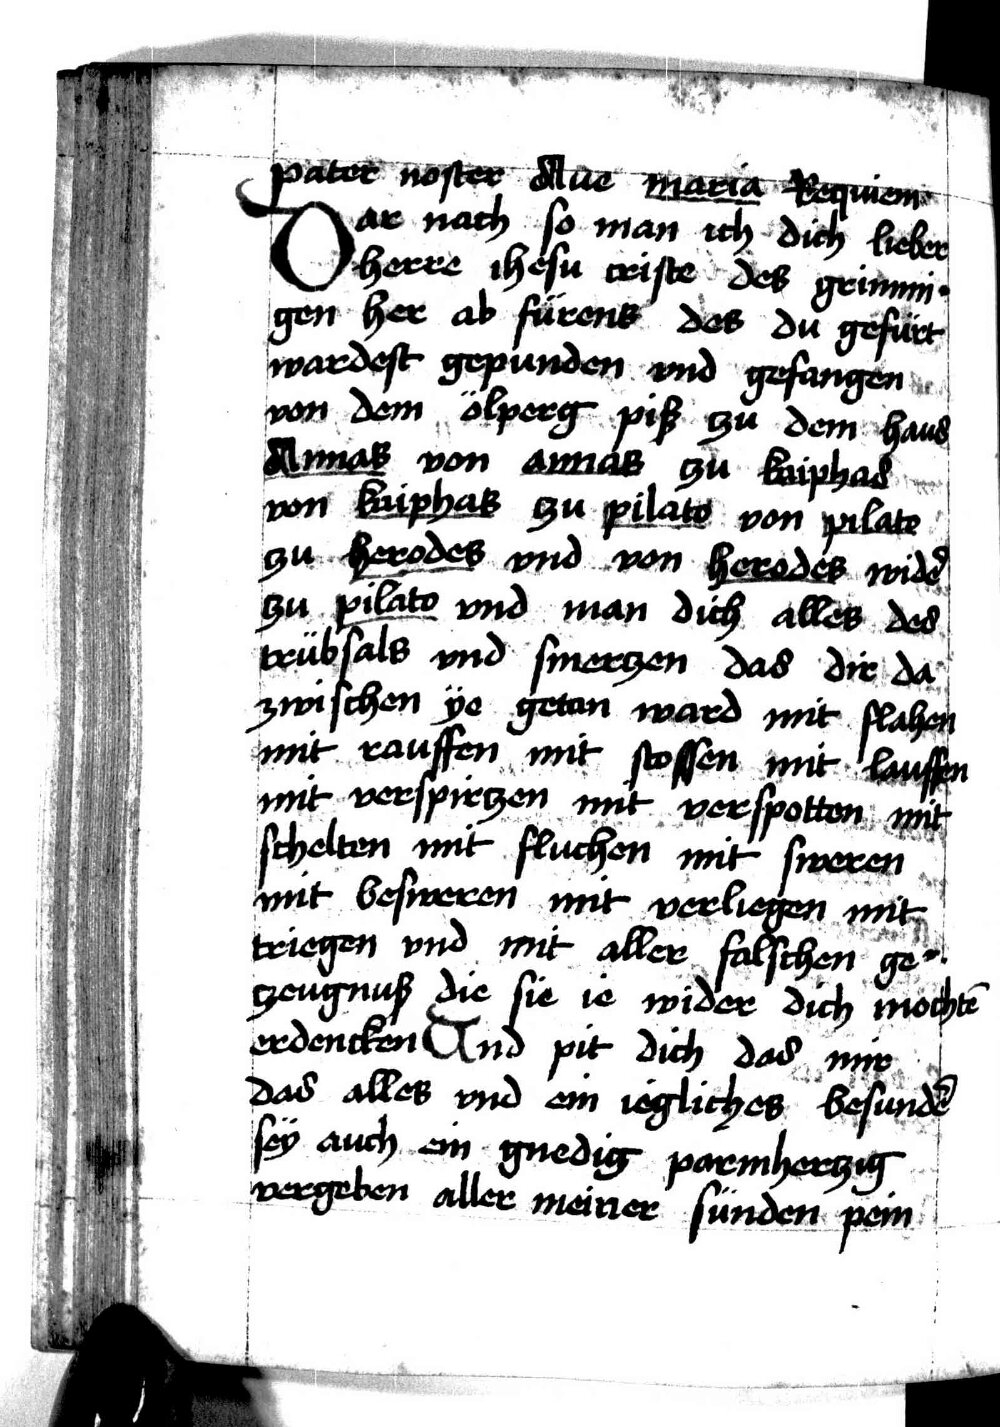 pater noster Aue maria Requiem
Dar nach so man ich dich lieber
herre ihesu criste des grimmi-
gen her ab fürens des du gefürt
wardest gepunden vnd gefangen
von dem ölperg piß zu dem haus
Annas von annas zu kaiphas
von kaiphas zu pilato von pilato
zu herodes vnd von herodes wider̄
zu pilato vnd man dich alles des
trübsals vnd smertzen das dir da
zwischen ÿe getan ward mit slahen
mit rauffen mit stossen mit lauffen
mit verspirtzen mit verspotten mit
schelten mit fluchen mit sweren
mit besweren mit verliegen mit
triegen vnd mit aller falschen ge-
tzeugnuß die sie ie wider dich mochtē
erdencken Vnd pit dich das mir
das alles vnd ein iegliches besunder̄
seÿ auch ein gnedig parmhertzig
vergeben aller meiner sünden pein